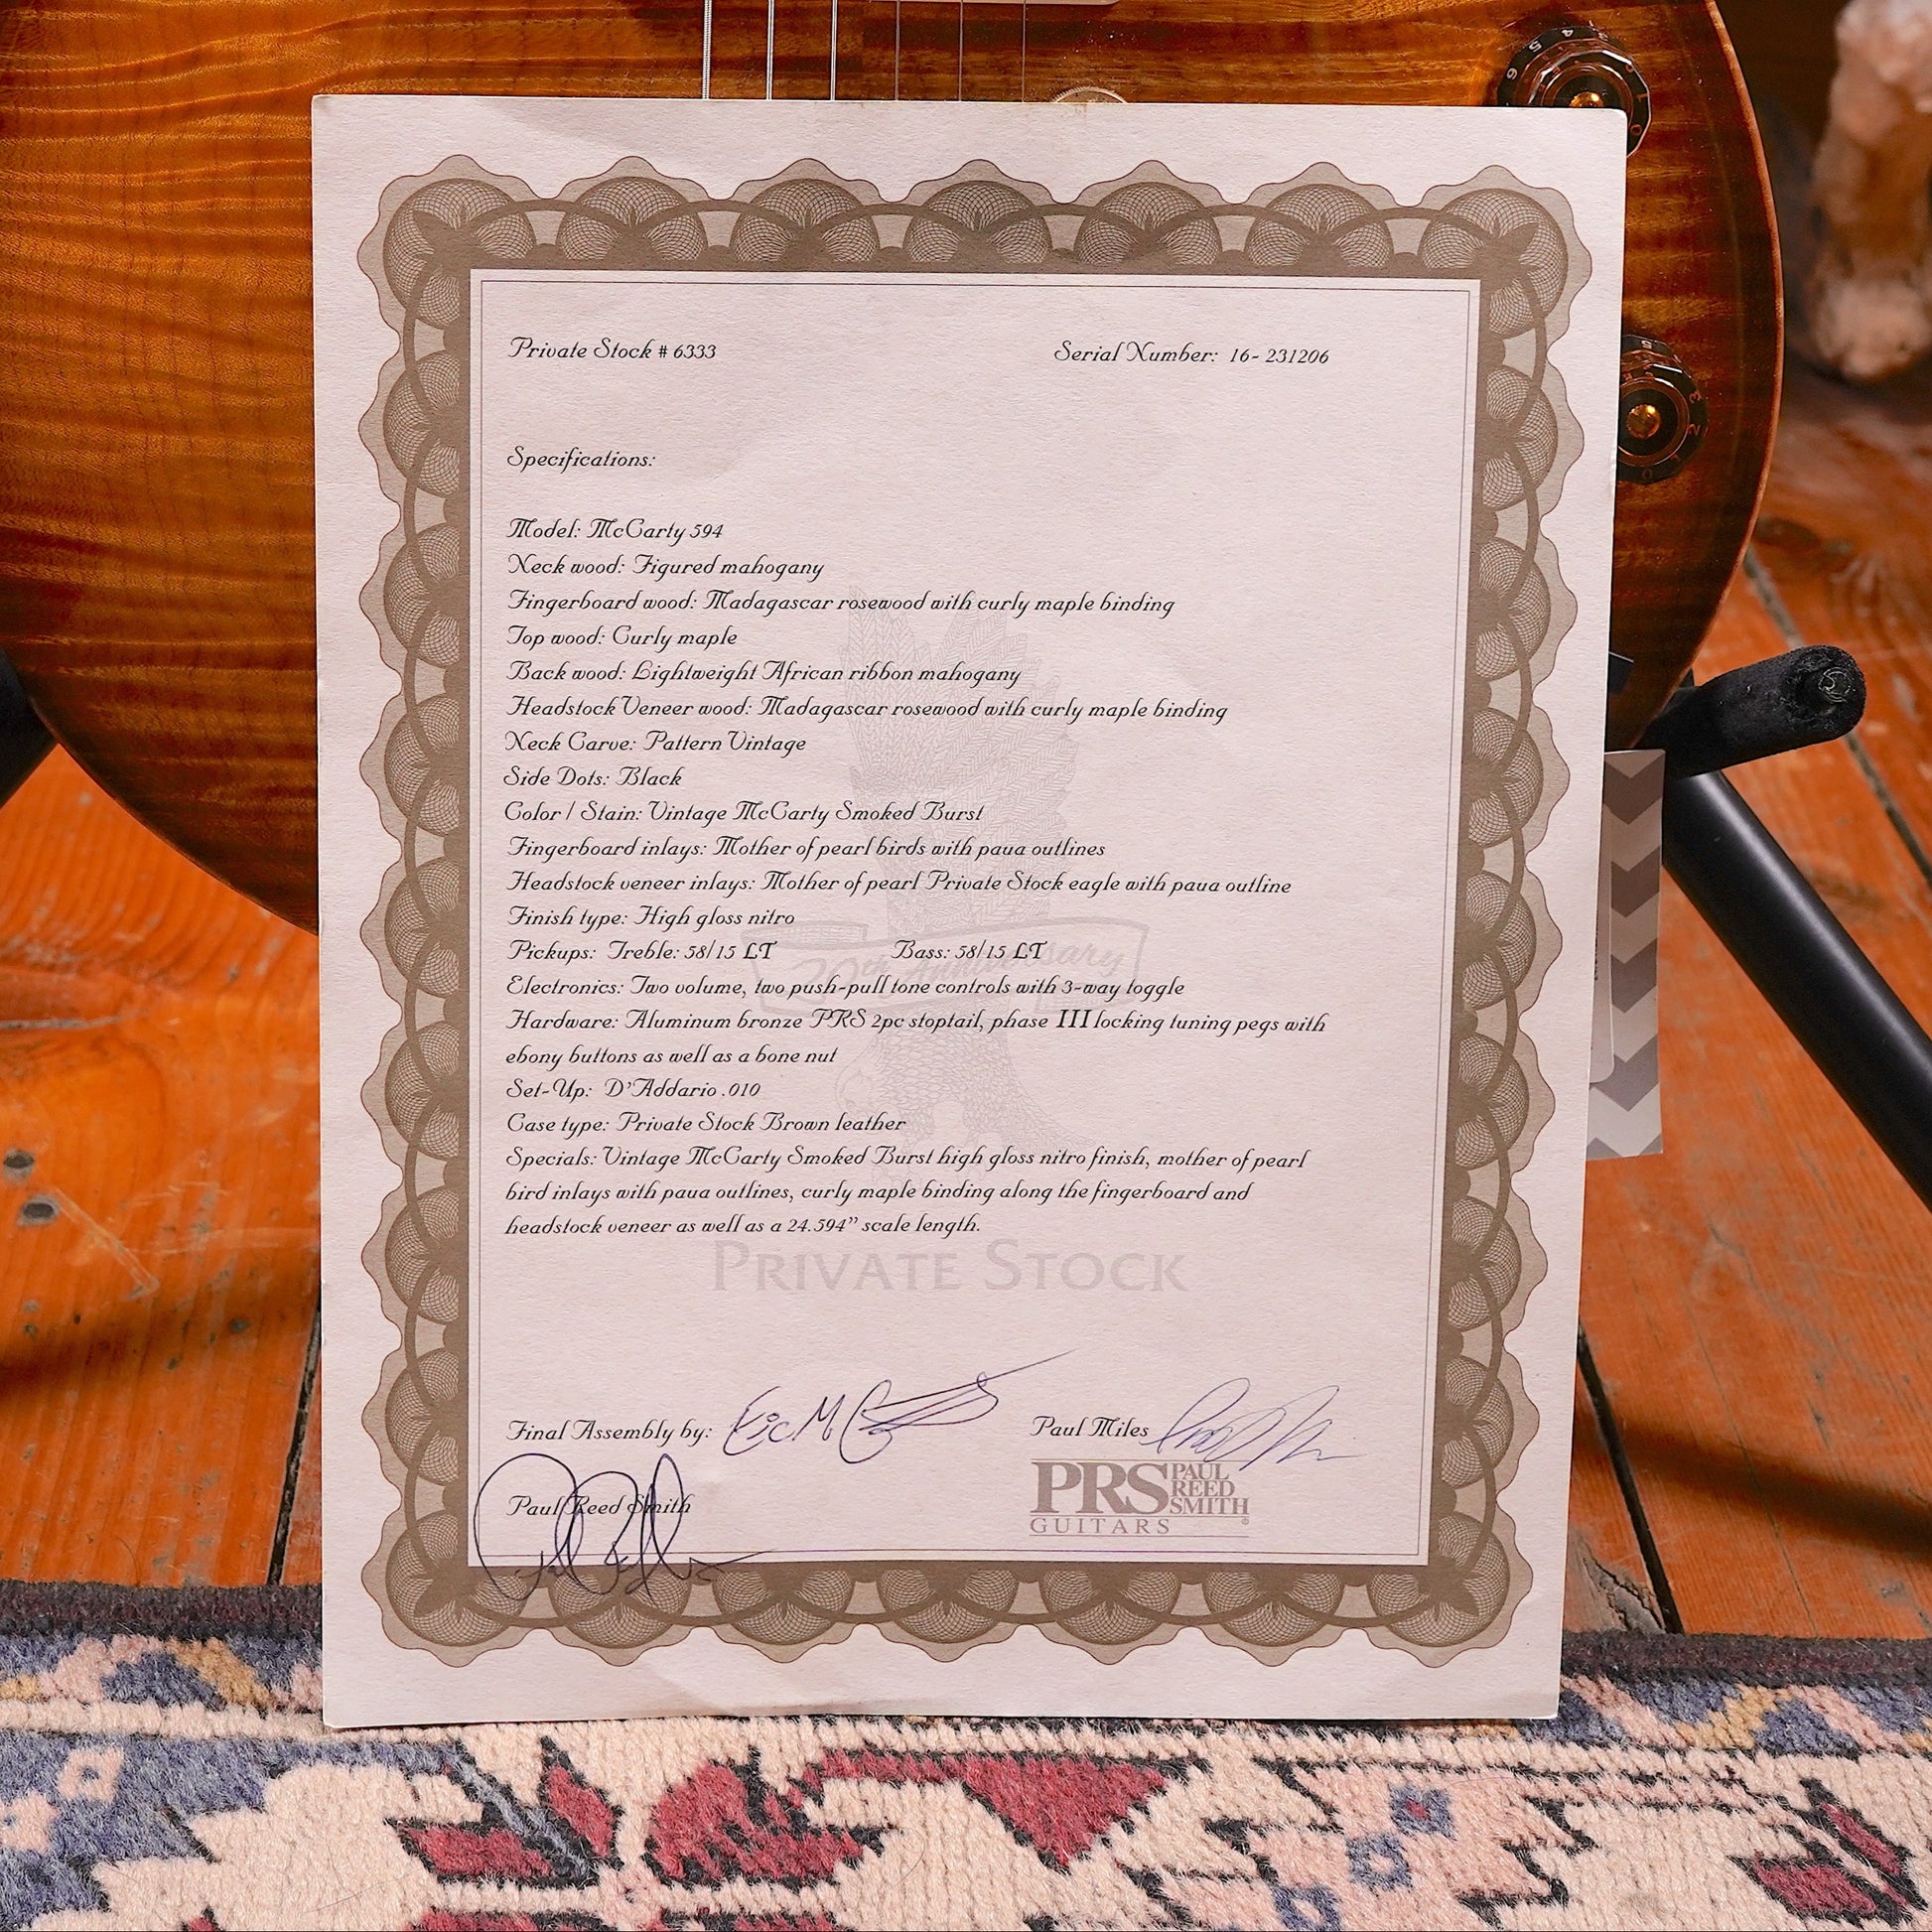 Private Stock # 6333
Serial Number: 16-231206
Specifications:
Model: McCarty 594
Neck wood: Figured mahogany
Fingerboard wood: Madagascar rosewood with curly maple binding
Top wood: Curly maple
Back wood: Lightweight African ribbon mahogany
Headstock Veneer wood: Madagascar rosewood with curly maple binding
Neck Carve: Pattern Vintage
Side Dots: Black
Color / Stain: Vintage McCarty Smoked Burst
Fingerboard inlays: Mother of pearl birds with paua outlines
Headstock veneer inlays: Mother of pearl Private Stock eagle with paua outline
Finish type: High gloss nitro
Pickups: Treble: 58/15 LT Bass: 58/15 LT
20th Anniversary
Electronics: Two volume, two push-pull tone controls with 3-way toggle
Hardware: Aluminum bronze PRS 2pc stoptail, phase III locking tuning pegs with
ebony buttons as well as a bone nut
Set-Up: D'Addario .010
Case type: Private Stock Brown leather
Specials: Vintage McCarty Smoked Burst high gloss nitro finish, mother of pearl
bird inlays with paua outlines, curly maple binding along the fingerboard and
headstock veneer as well as a 24.594" scale length.
PRIVATE STOCK
Final Assembly by: Eric
Paul Miles
Paul Reed Smith
PRS PAUL
REED
SMITH
GUITARS